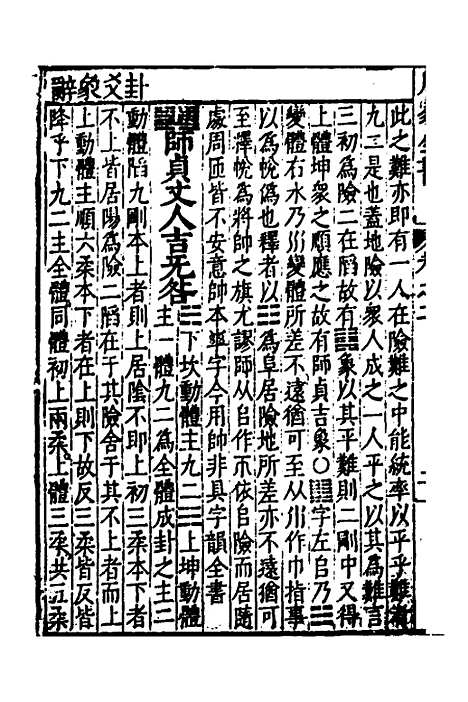 卦爻彖辭
此之難亦即有一人在險難之中能統率以平乎難者
九二是也蓋地險以衆人成之一人平之以其爲難言
三初爲險二在陷故有䷆象以其平難則二剛中又得
上體坤衆之順應之故有師貞吉象〇䷆字左𠂤乃☷
變體右水乃巛變體所差不遠猶可至从巛作巾指事
以爲悅僞也釋者以☷爲阜居險地所差亦不遠猶可
至釋悅爲將帥之旗尤謬師从𠂤作帀依𠂤險而居隨
處周匝皆不安意帥本率字今用帥非具字韻全書
䷆師貞丈人吉无咎☵下坎動體主九二☷上坤動體
主一體九二爲全體成卦之主二
動體陷九剛本上者則上居陰不即上初三柔本下者
不上皆居陽爲險二陷在于其險舍于其不上者而上
上動體主順六柔本下者在上則下故反三柔皆反皆
降乎下九二主全體同體初上兩柔上體三柔共五柔